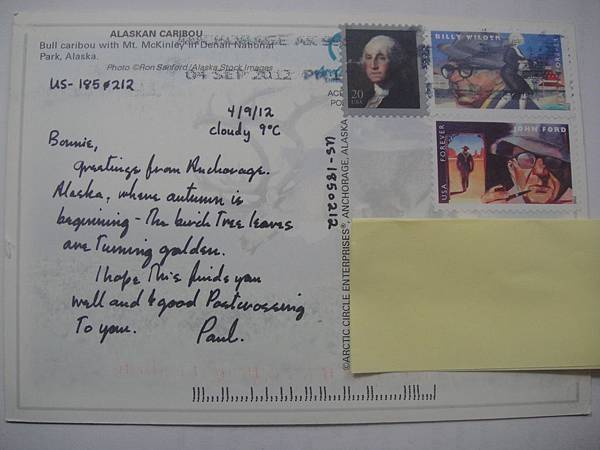 ALASKAN CARIBOU
Bull caribou with Mt. McKinley in Denali National
Park, Alaska.
Photo ©Ron Sanford/Alaska Stock Images
04 SEP 2012 PM
US-1850212
4/9/12
cloudy 9°C
Bonnie,
Greetings from Anchorage.
Alaska, where autumn is
beginning - The birch Tree leaves
are Turning golden.
I hope This finds you
well and & good Postcrossing
To you.
Paul.
US-1850212
©ARCTIC CIRCLE ENTERPRISES®, ANCHORAGE, ALASKA
20
USA
BILLY WILDER
FOREVER
JOHN FORD
USA FOREVER